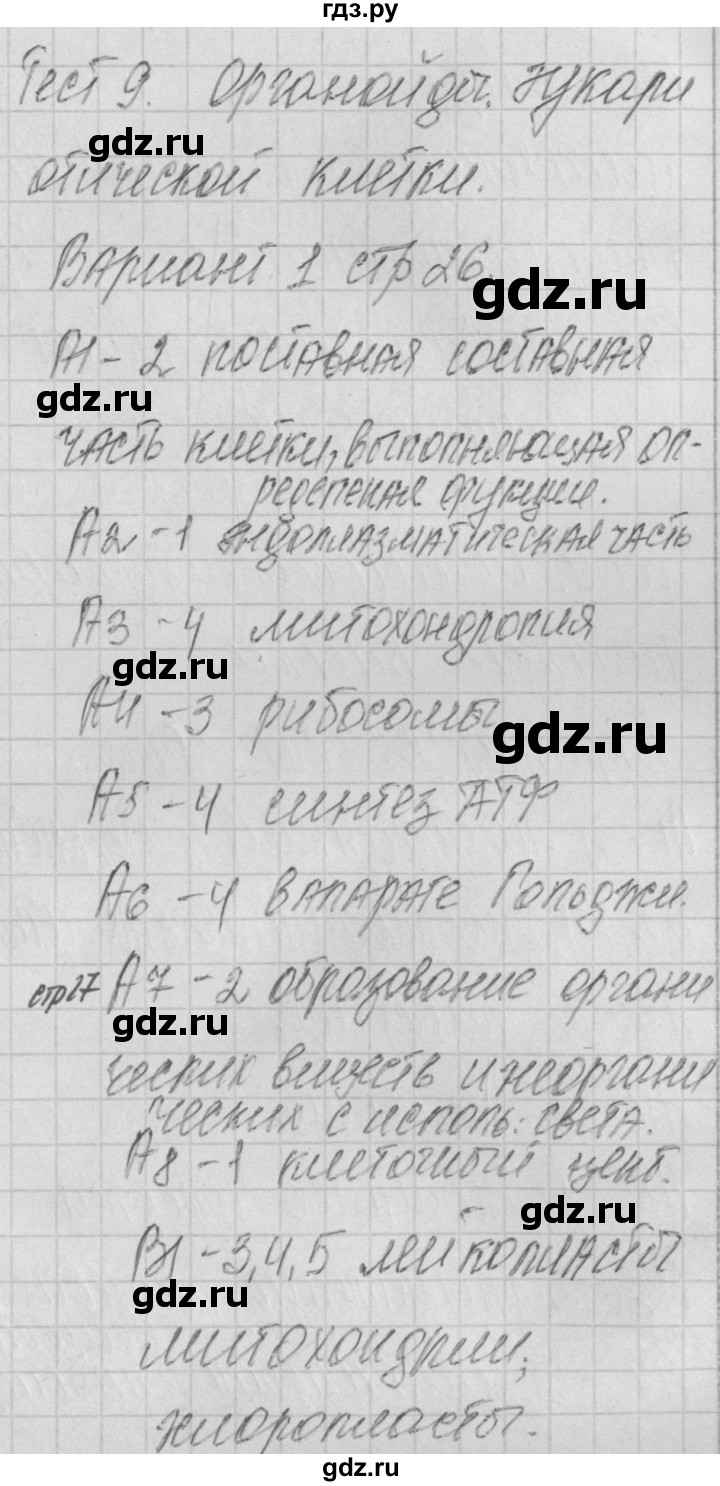 гдз.ру
Тест 9. Органойды. Эукари
gdz.ru
отической клетки.
Вариант 1 стр 26.
gdz.ru
А1 - 2 поставная составная
gdz.ru
часть клетки, выполняющая оп-
ределеная функции.
А2 - 1 эндоплазматическая часть
А3 - 4 митохондропия
gdz.ru
А4 - 3 рибосомы
gdz.ru
А5 - 4 синтез АТФ
gdz.ru
А6 - 4 в апарате Гольджи.
gdz.ru
стр27 А7 - 2 образование органи
gdz.ru
ческих веществ и неоргани
ческих с исполь: света.
А8 - 1 клеточный цент.
gdz.ru
В1 - 3,4,5 лейкопласты
gdz.ru
митохондрии,
хлоропласты.
gdz.ru